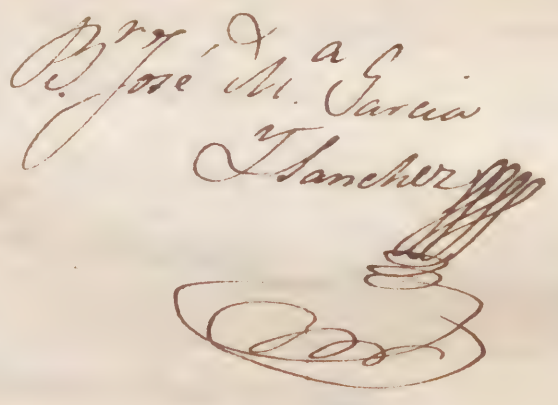 B.r José M.a Garcia
Y Sanchez